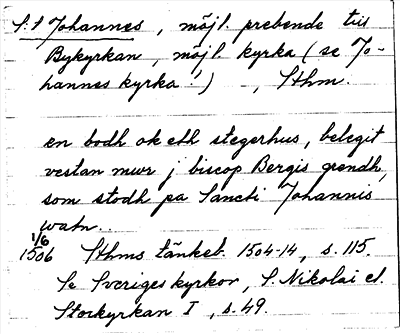 S:t Johannes, möjl. prebende till
Bykyrkan, möjl. kyrka (se Jo-
hannes kyrka!), Sthm.
en bodh ok eth stegerhus, belegit
vestan mwr j biscop Bergis grendh,
som stodh pa Sancti Johannis
watn...
1/6
1506 Sthms tänkeb. 1504-14, s. 115.
Se Sveriges kyrkor, S. Nikolai el.
Storkyrkan I, s. 49.